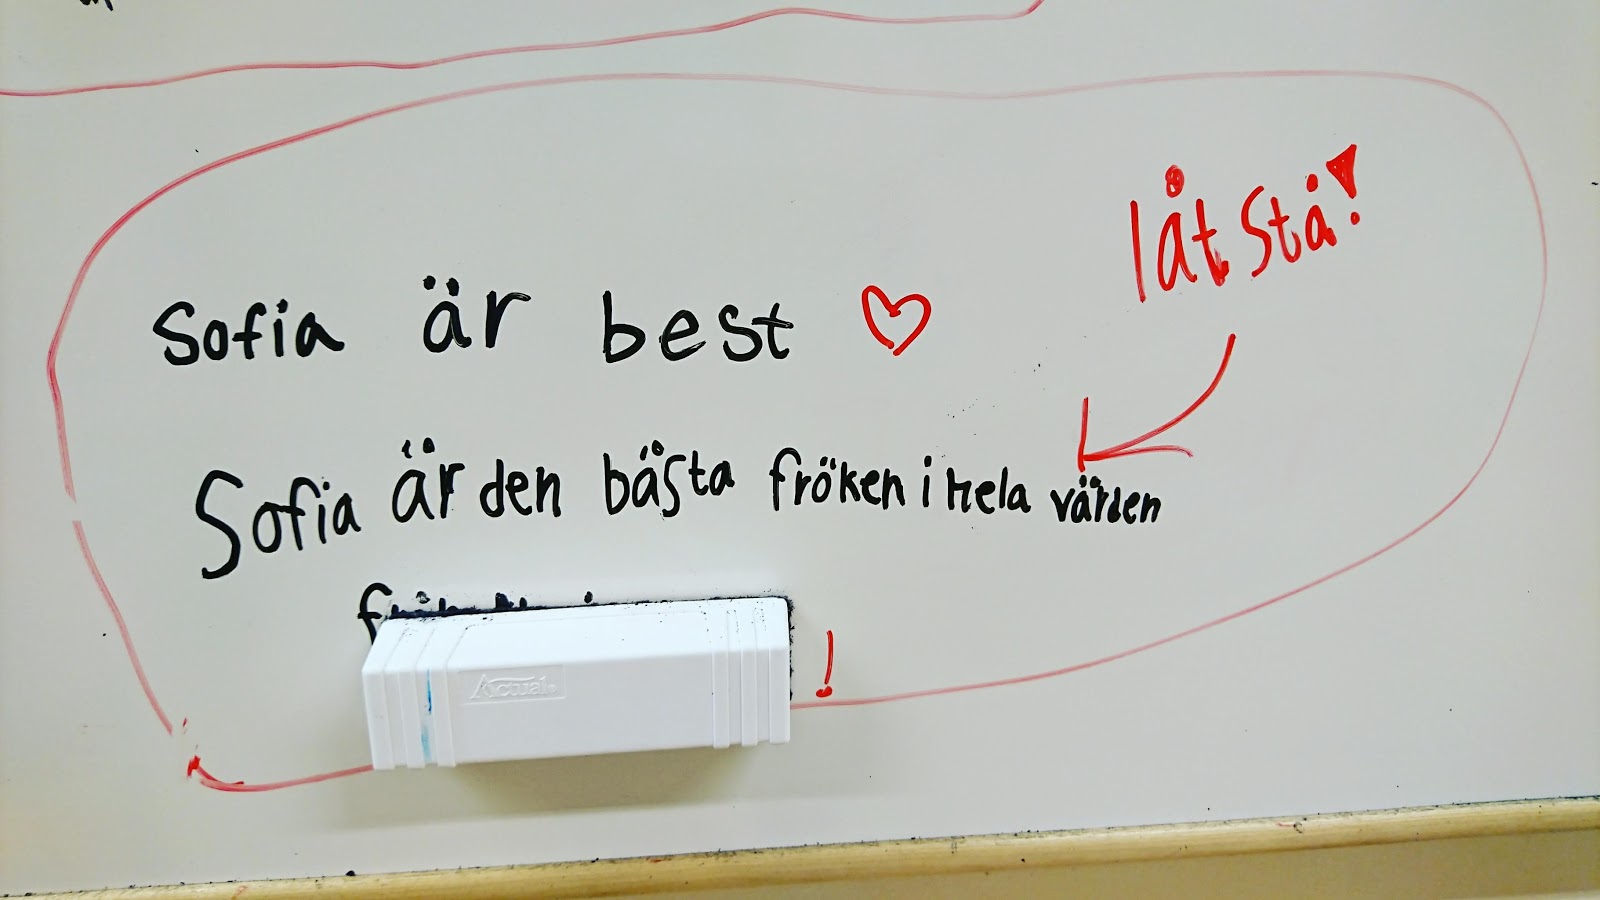 Sofia är best ♡
låt stå!
Sofia är den bästa fröken i hela värden
!
Actual